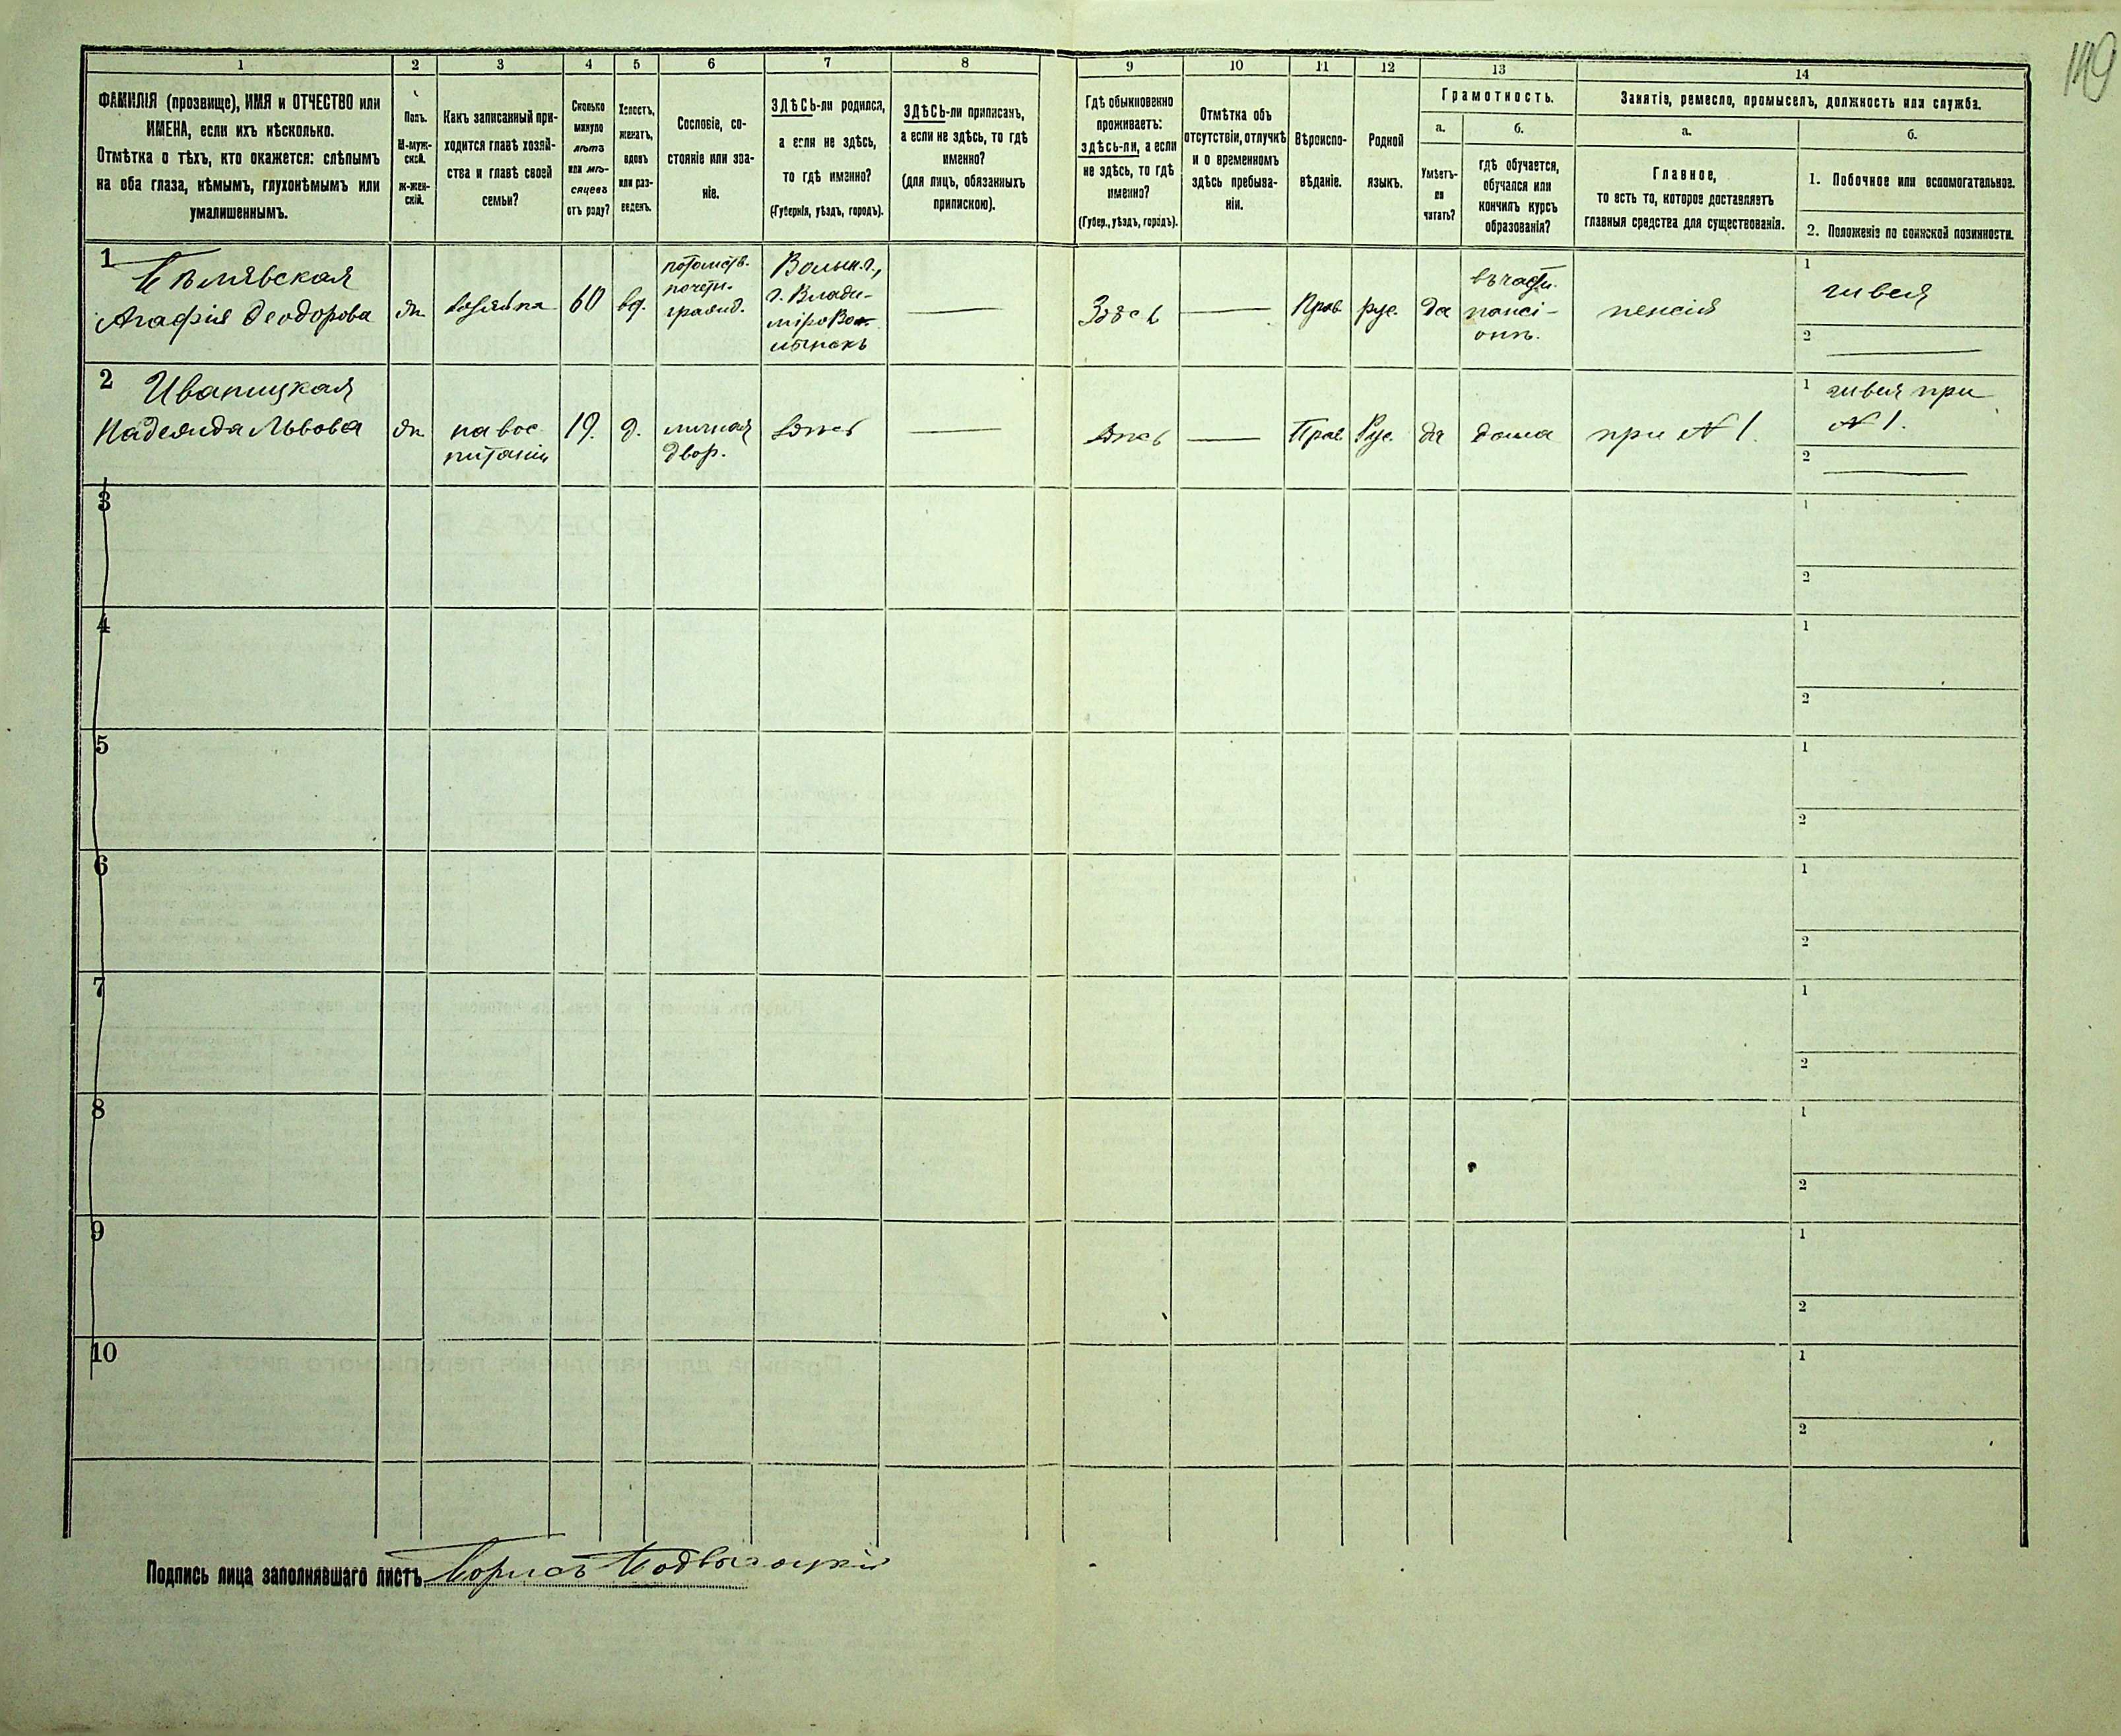 149
1 2 3 4 5 6 7 8 9 10 11 12 13 14
ФАМИЛІЯ (прозвище), ИМЯ и ОТЧЕСТВО или
ИМЕНА, если ихъ нѣсколько.
Отмѣтка о тѣхъ, кто окажется: слѣпымъ
на оба глаза, нѣмымъ, глухонѣмымъ или
умалишеннымъ.
Полъ.
М-муж-
ской.
ж-жен-
скій.
Какъ записанный при-
ходится главѣ хозяй-
ства и главѣ своей
семьи?
Сколько
минуло
лѣтъ
или мѣ-
сяцевъ
отъ роду?
Холостъ,
женатъ,
вдовъ
или раз-
веденъ.
Сословіе, со-
стояніе или зва-
ніе.
ЗДѢСЬ-ли родился,
а если не здѣсь,
то гдѣ именно?
(Губернія, уѣздъ, городъ).
ЗДѢСЬ-ли приписанъ,
а если не здѣсь, то гдѣ
именно?
(для лицъ, обязанныхъ
припискою).
Гдѣ обыкновенно
проживаетъ:
здѣсь-ли, а если
не здѣсь, то гдѣ
именно?
(Губер., уѣздъ, городъ).
Отмѣтка объ
отсутствіи, отлучкѣ
и о временномъ
здѣсь пребыва-
ніи.
Вѣроиспо-
вѣданіе.
Родной
языкъ.
Грамотность.
а.
Умѣетъ-
ли
читать?
б.
гдѣ обучается,
обучался или
кончилъ курсъ
образованія?
Занятіе, ремесло, промыселъ, должность или служба.
а.
Главное,
то есть то, которое доставляетъ
главныя средства для существованія.
б.
1. Побочное или вспомогательное.
2. Положеніе по воинской повинности.
1
Агафія Ѳеодорова
ж
хозяйка
60
вд.
потомств.
почетн.
гражд.
Волын. г.,
г. Влади-
міръ Во-
лынскъ
Здѣсь
Прав.
рус.
да
въ частн.
пансі-
онѣ.
пенсія
1
швея
2
2
Иваницкая
Надежда Львова
ж
на вос
питаніи
19.
д.
личная
двор.
здѣсь
здѣсь
Прав
Рус.
да
дома
при № 1.
1
швея при
№ 1.
2
3
1
2
4
1
2
5
1
2
6
1
2
7
1
2
8
1
2
9
1
2
10
1
2
Подпись лица заполнявшаго листъ Борисъ